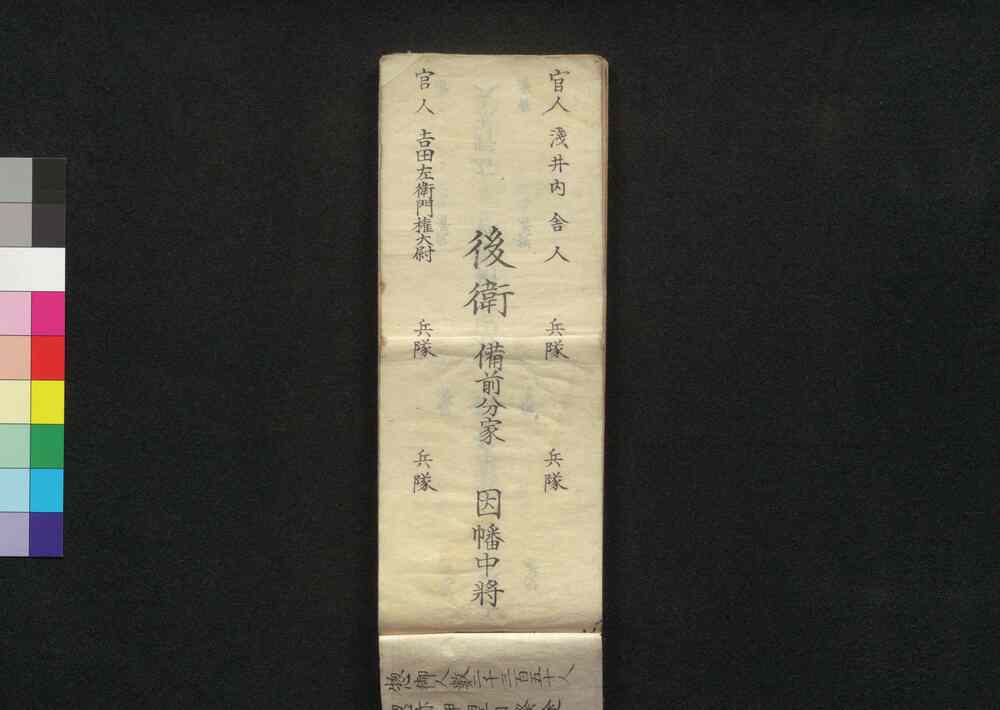 官人 淺井内舎人 兵隊 兵隊
後衛 備前分家 因幡中將
官人 吉田左衛門権大尉 兵隊 兵隊
惣御人数二千三百五十人